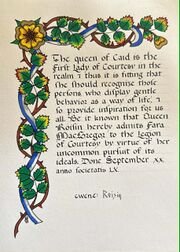 The queen of Caid is the
First Lady of Courtesy in the
realm & thus it is fitting that
She should recognise those
persons who display gentle
behavior as a way of life, &
so provide inspiration for us
all. Be it known that Queen
Róilín hereby admits Fara
MacGregor to the Legion
of Courtesy by virtue of her
uncommon pursuit of its
ideals. Done September XX
anno societatis LX.
cwene Róisín